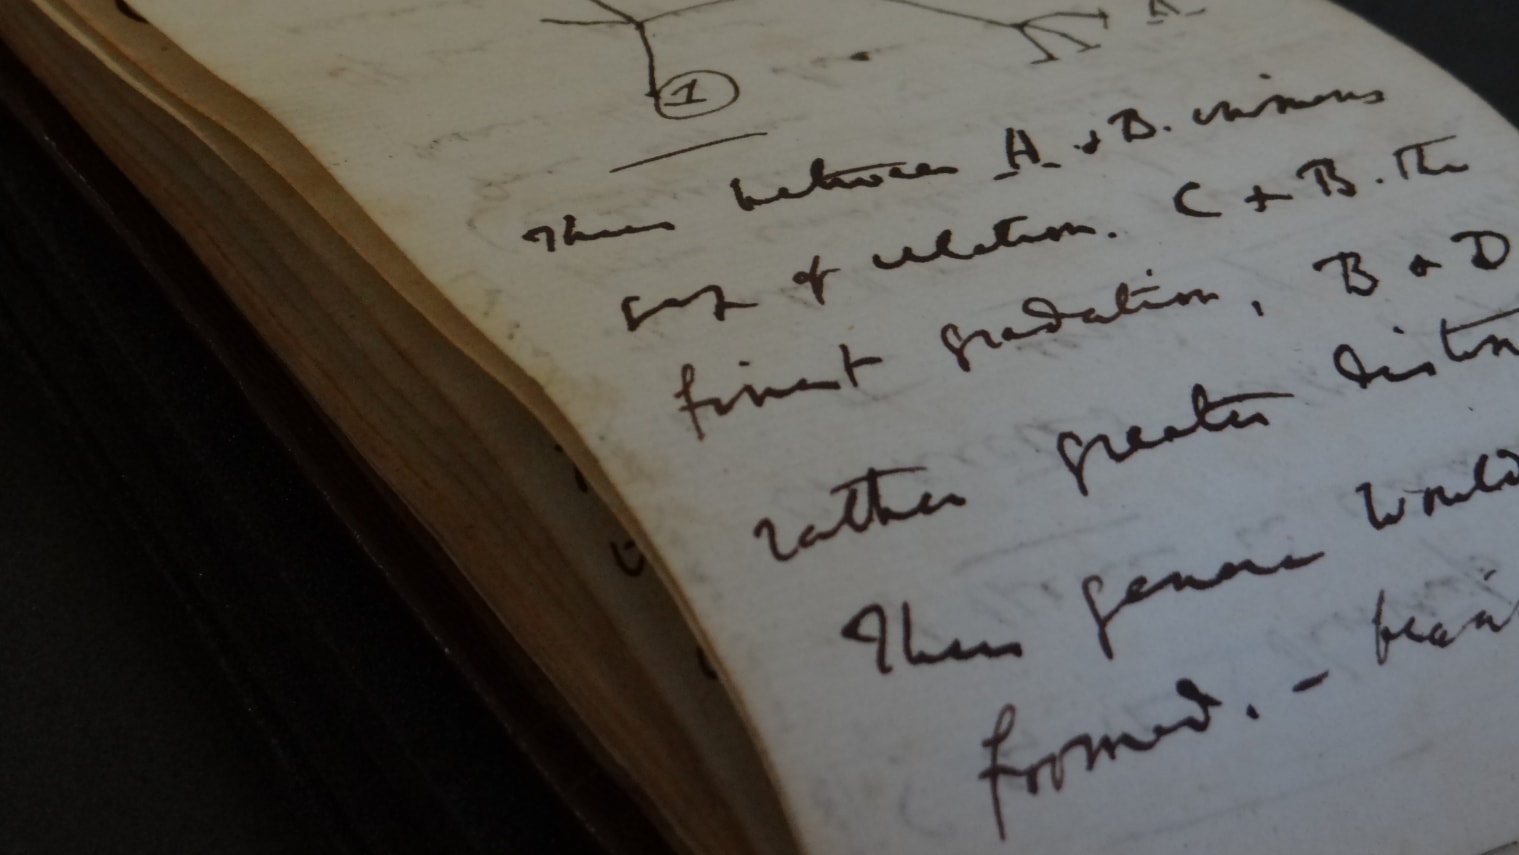 A
1
Thus between A. & B. immens
gap of relation. C + B. The
finest gradation, B & D
rather greater distin
Thus genera would
formed. — beari